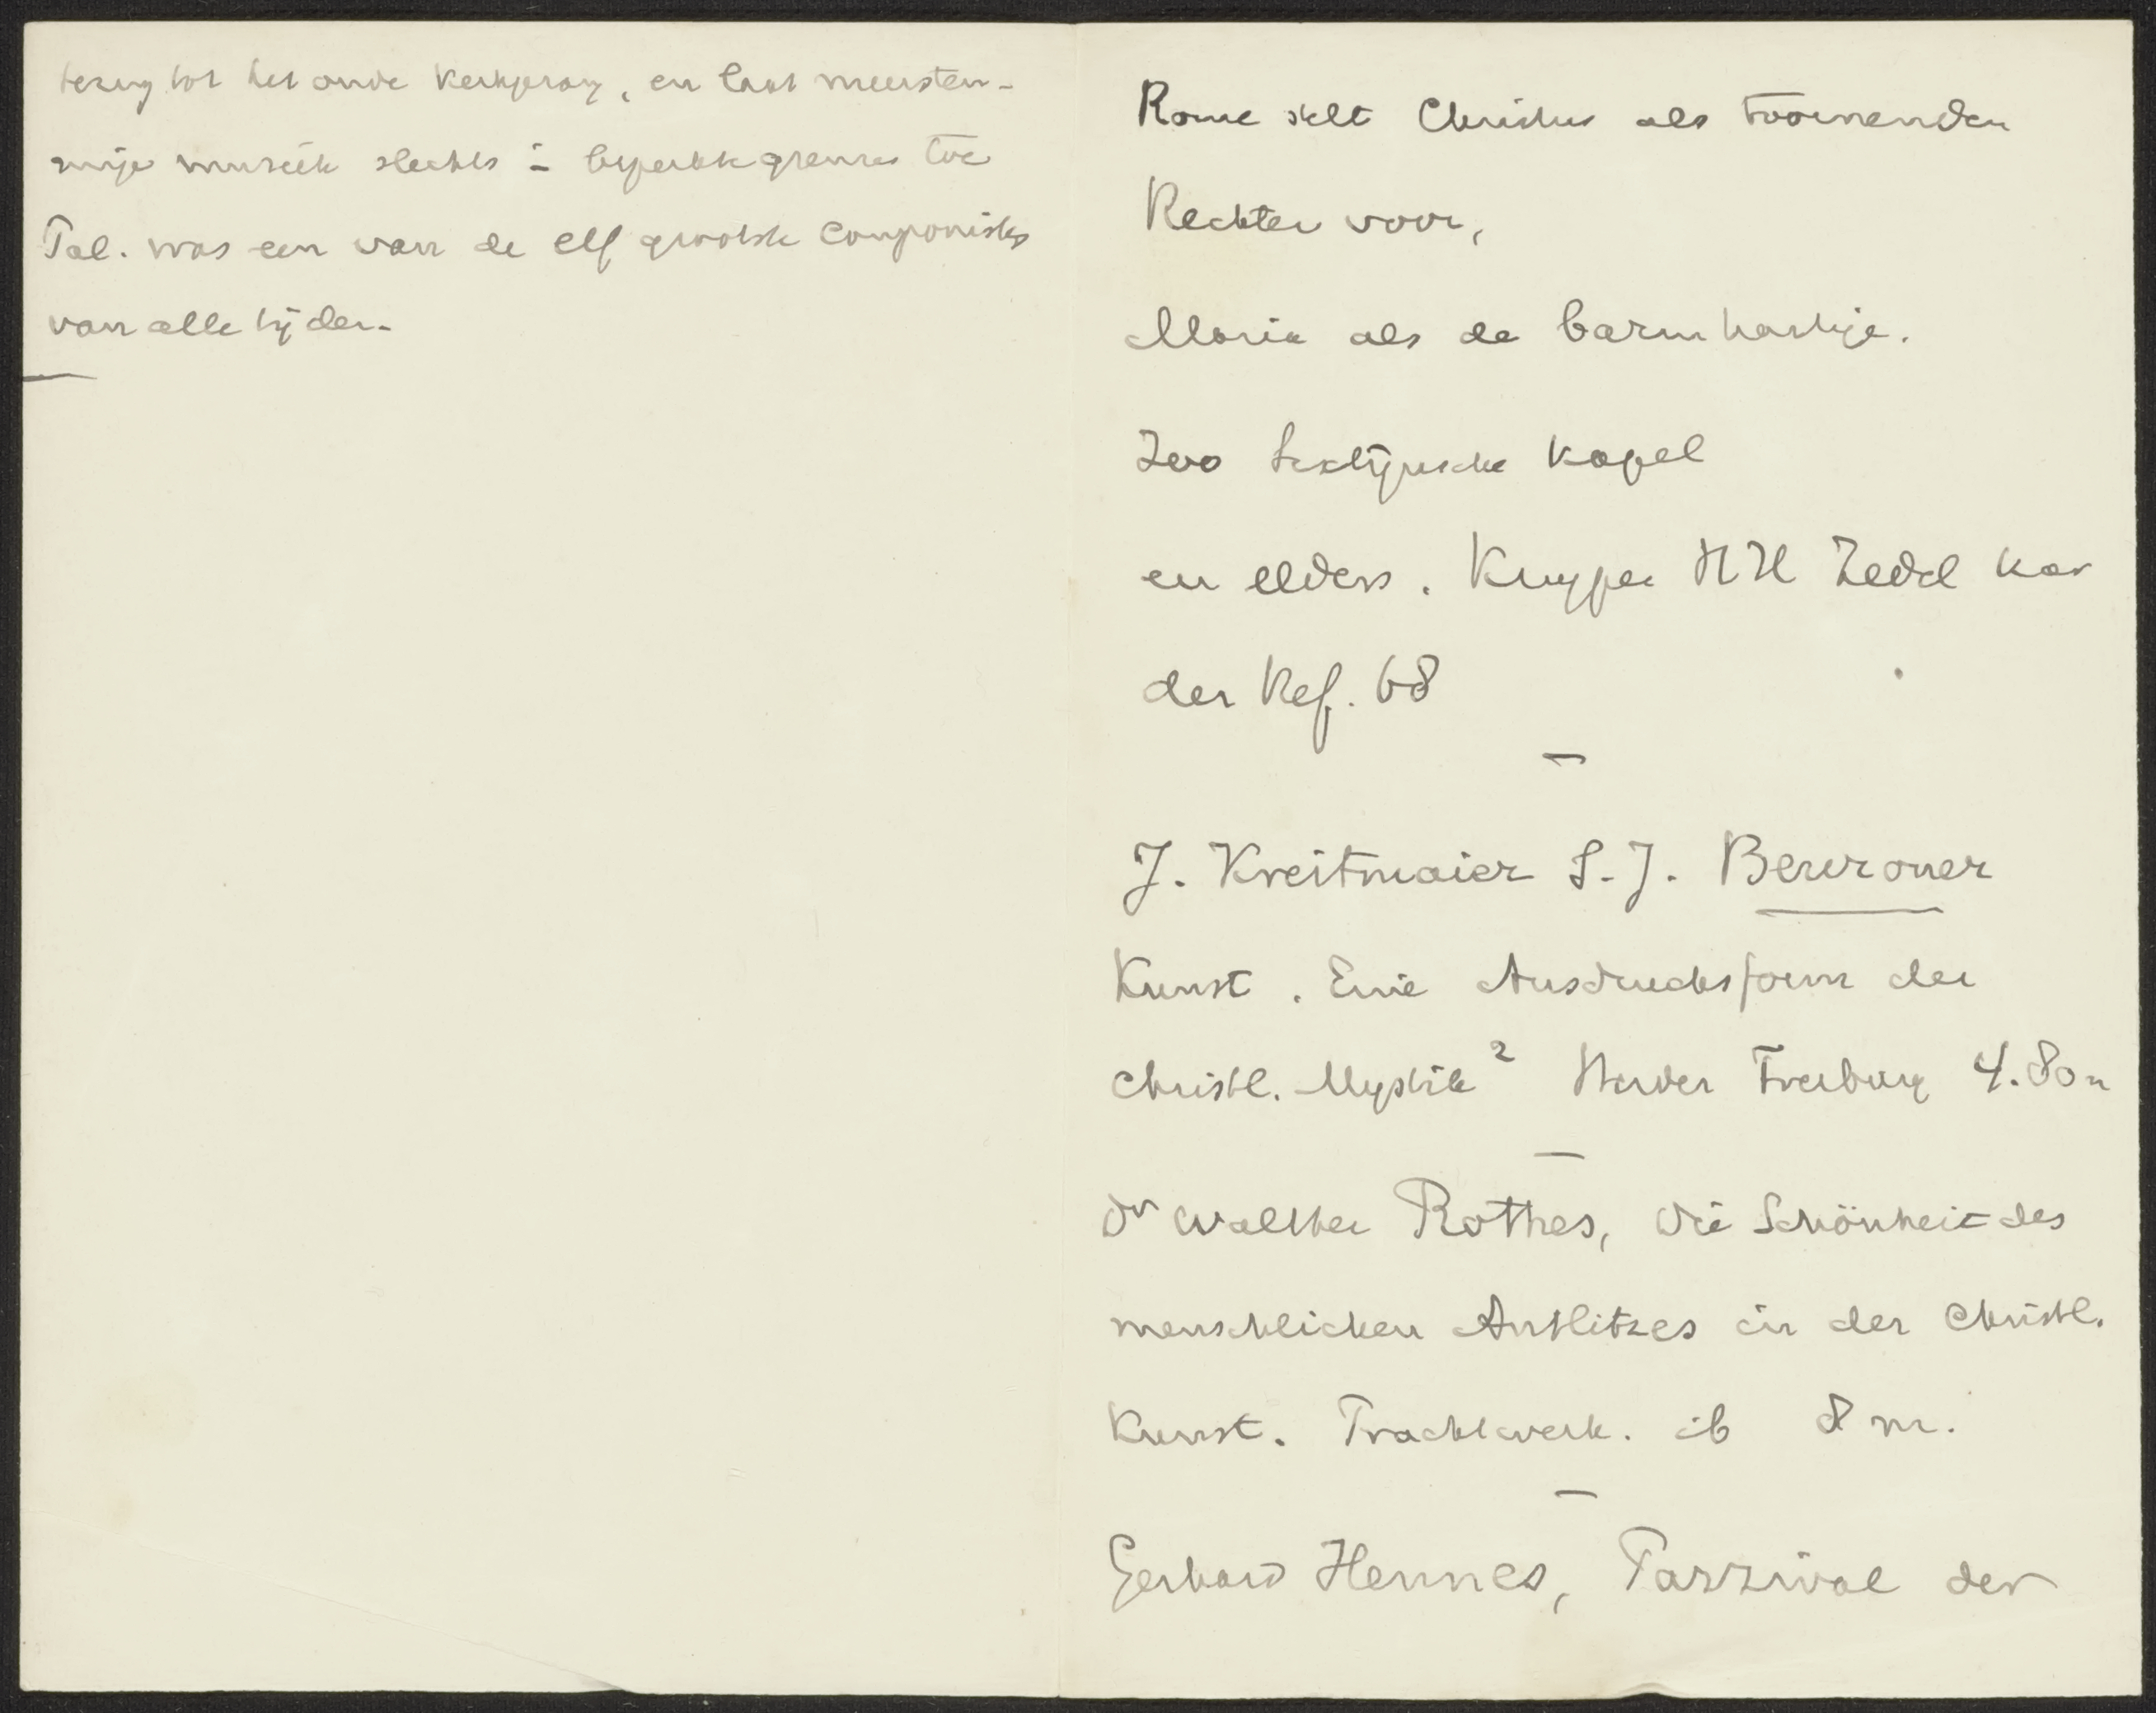 terug tot het oude kerkgezang, en laat meersten-
mige muziek slechts in beperkte grenzen toe
Pal. was een van de elf grootste componisten
van alle tijden.
Rome stelt Christus als toornenden
Rechter voor,
Maria als de barmhartige.
Zoo Sixtijnsche Kapel
en elders. Kuyper H H Zedel kar
der Ref. 68
J. Kreitmaier S.J. Beuroner
Kunst. Eine Ausdrucksform der
Christl. Mystik² Herder Freiburg 4.80 m
Dr Walther Rothes, Die Schönheit des
menschlichen Antlitzes in der Christl.
Kunst. Prachtwerk. ib 8 m.
Gerhard Hennes, Parzival der